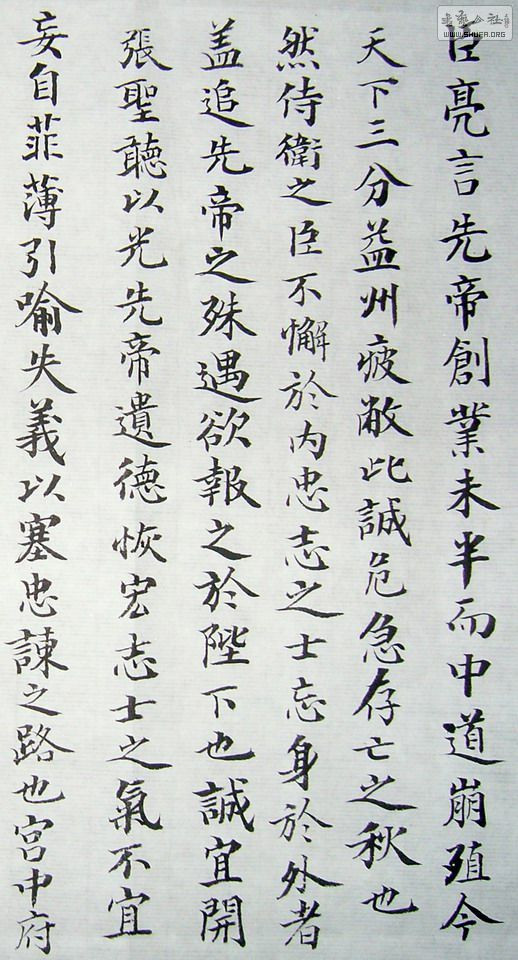 臣亮言先帝創業未半而中道崩殖今
天下三分益州疲敝此誠危急存亡之秋也
然侍衛之臣不懈於内忠志之士忘身於外者
盖追先帝之殊遇欲報之於陛下也誠宜開
張聖聽以光先帝遺德恢宏志士之氣不宜
妄自菲薄引喻失義以塞忠諫之路也宫中府
WWW.SHUFA.ORG